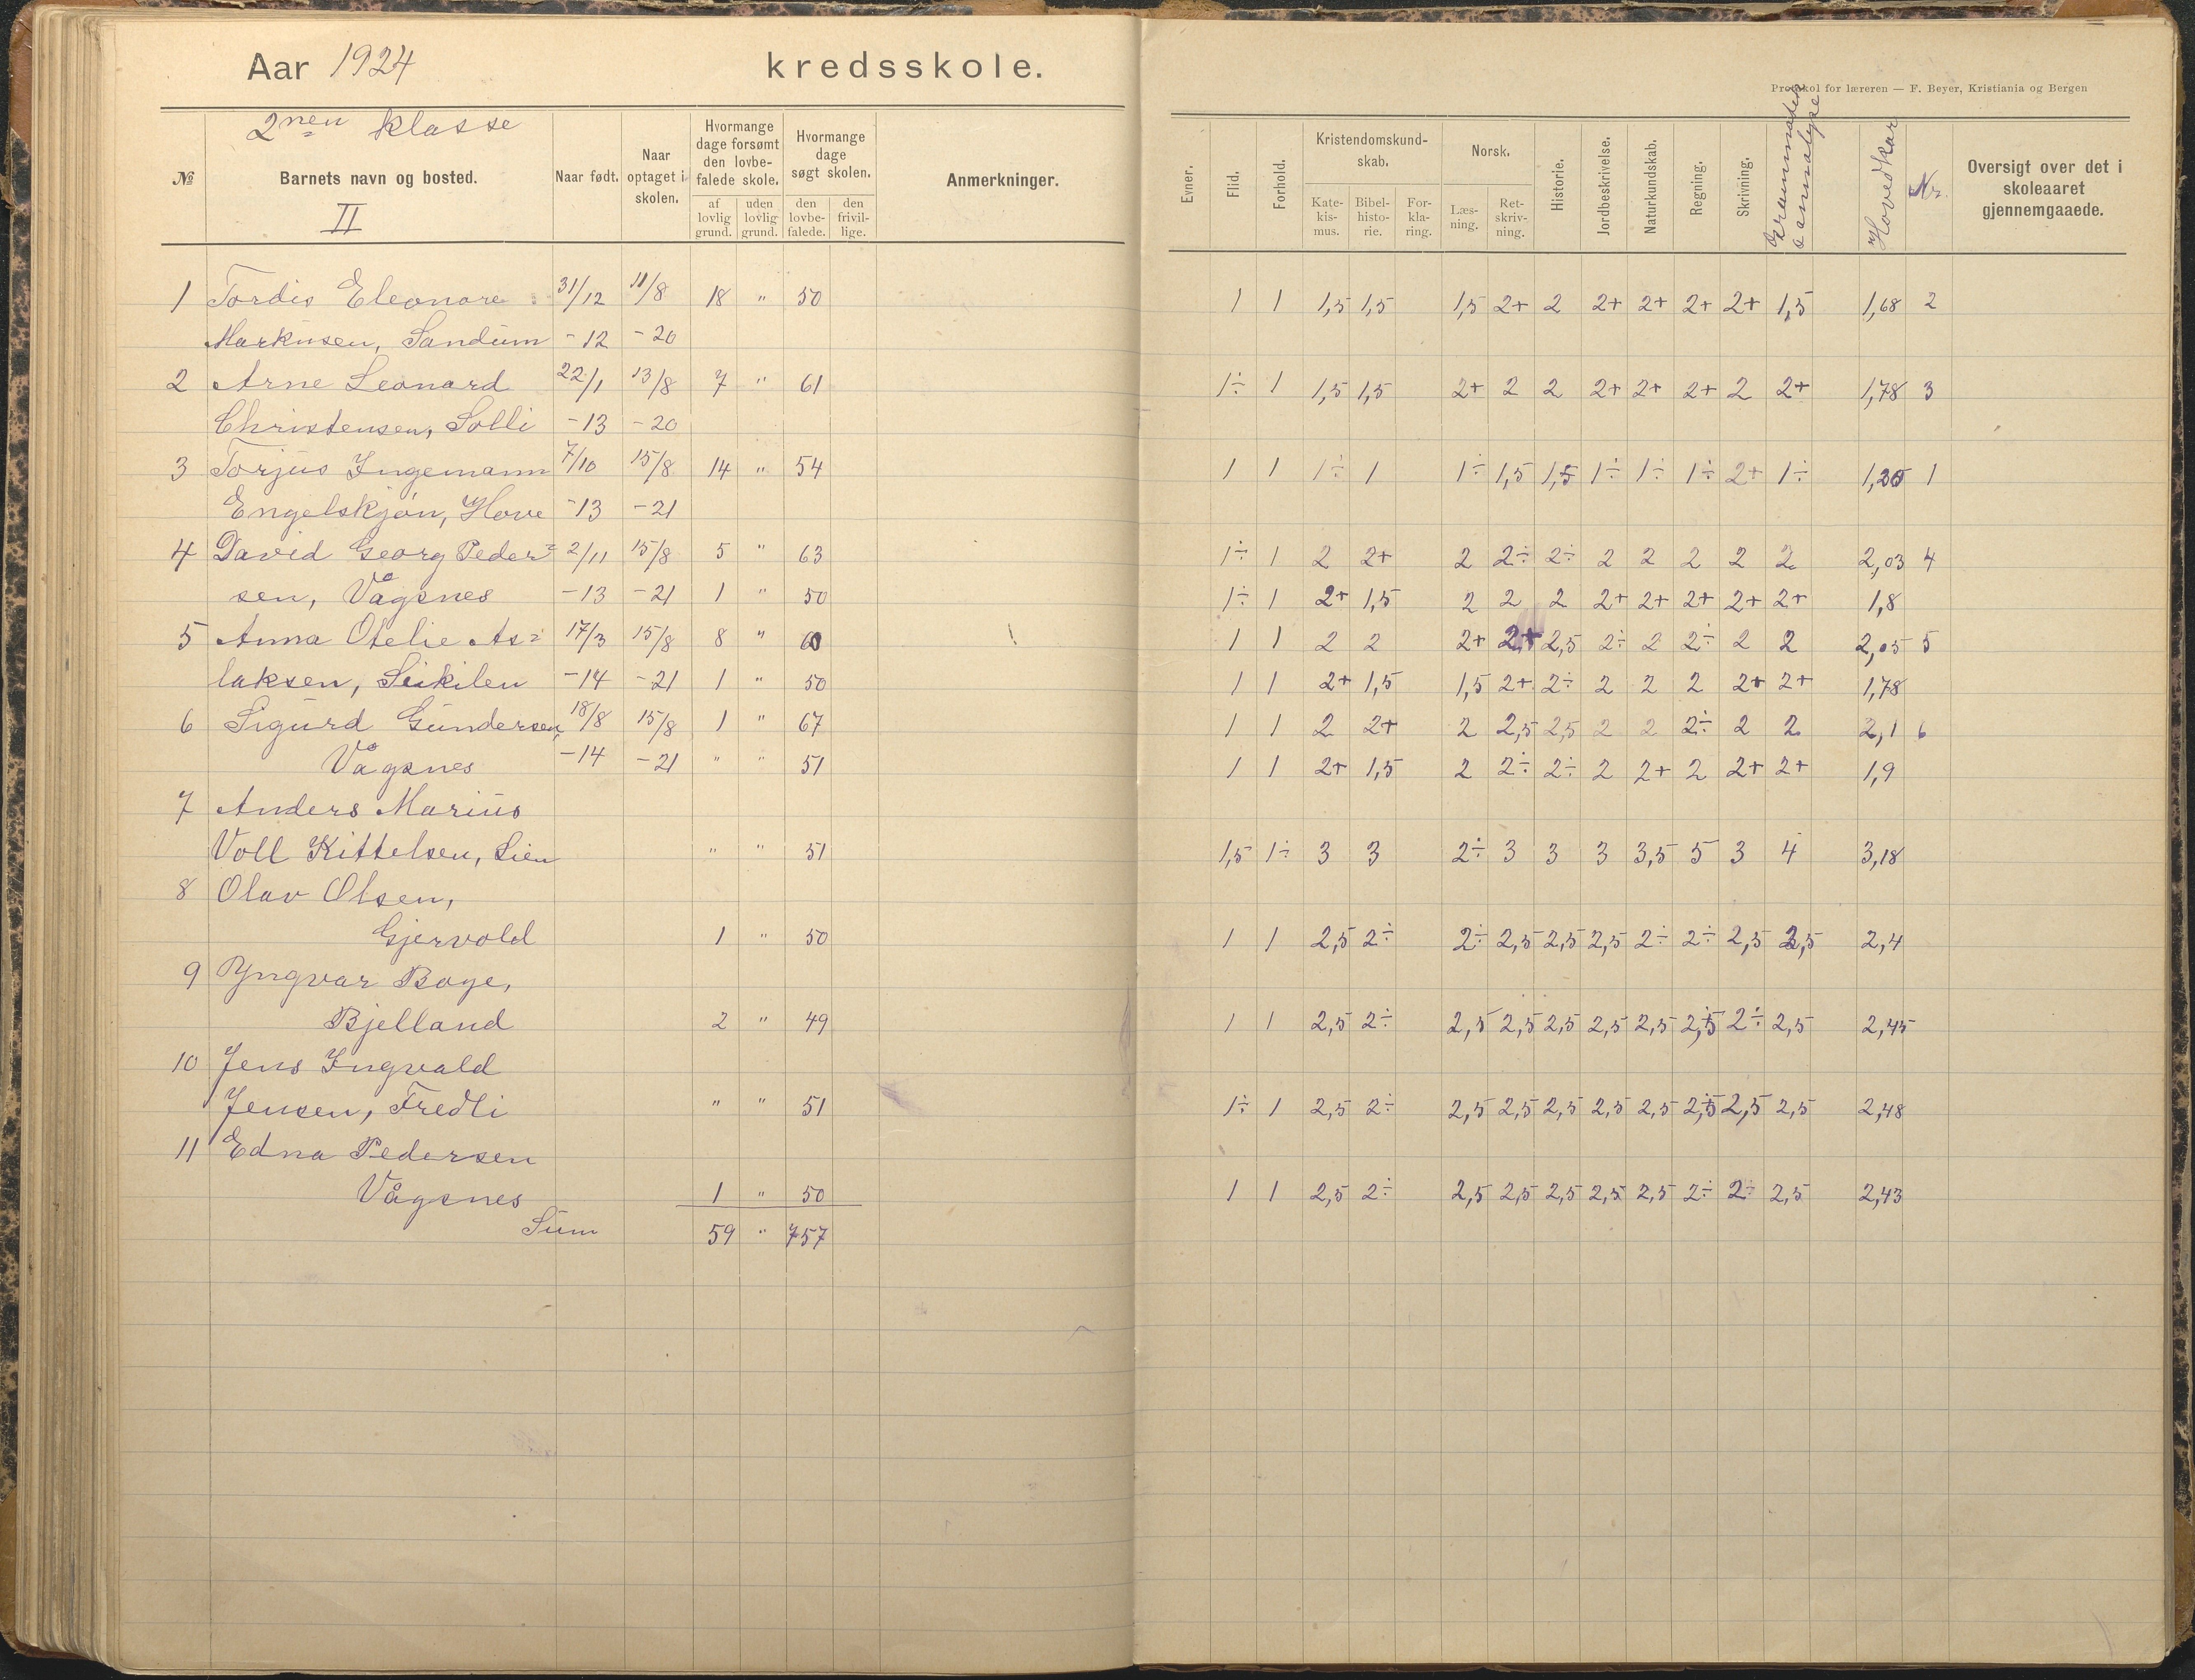 Aar 1924 kredsskole.
Protokol for læreren — F. Beyer, Kristiania og Bergen
2nen klasse
II
№ Barnets navn og bosted. Naar født. Naar optaget i skolen. Hvormange dage forsømt den lovbefalede skole. af lovlig grund. uden lovlig grund. Hvormange dage søgt skolen. den lovbefalede. den frivillige. Anmerkninger.
Evner. Flid. Forhold. Kristendomskundskab. Katekismus. Bibelhistorie. Forklaring. Norsk. Læsning. Retskrivning. Historie. Jordbeskrivelse. Naturkundskab. Regning. Skrivning. Hovedkar Nr. Oversigt over det i skoleaaret gjennemgaaede.
1 Tordis Eleonore 31/12 11/8 18 " 50 1 1 1,5 1,5 1,5 2+ 2 2+ 2+ 2+ 2+ 1,5 1,68 2
Markusen, Sandum -12 -20
2 Arne Leonard 22/1 13/8 7 " 61 1÷ 1 1,5 1,5 2+ 2 2 2+ 2+ 2+ 2 2+ 1,78 3
Christensen, Solli -13 -20
3 Torjus Ingemann 7/10 15/8 14 " 54 1 1 1÷ 1 1÷ 1,5 1,5 1÷ 1÷ 1÷ 2+ 1÷ 1
Engelskjøn, Hove -13 -21
4 David Georg Peder= 2/11 15/8 5 " 63 1÷ 1 2 2+ 2 2÷ 2÷ 2 2 2 2 2 2,03 4
sen, Vågsnes -13 -21 1 " 50 1÷ 1 2+ 1,5 2 2 2 2+ 2+ 2+ 2+ 2+ 1,8
5 Anna Otelie As= 17/3 15/8 8 " 60 1 1 2 2 2+ 2+ 2,5 2÷ 2 2÷ 2 2 2,05 5
laksen, Leikilen -14 -21 1 " 50 1 1 2+ 1,5 1,5 2+ 2÷ 2 2 2 2+ 2+ 1,78
6 Sigurd Gundersen, 18/8 15/8 1 " 67 1 1 2 2+ 2 2,5 2,5 2 2 2÷ 2 2 2,1 6
Vågsnes -14 -21 " " 51 1 1 2+ 1,5 2 2÷ 2÷ 2 2+ 2 2+ 2+ 1,9
7 Anders Marius
Voll Kittelsen, Lien " " 51 1,5 1÷ 3 3 2÷ 3 3 3 3,5 5 3 4 3,18
8 Olav Olsen,
Gjervold 1 " 50 1 1 2,5 2÷ 2÷ 2,5 2,5 2,5 2÷ 2÷ 2,5 2,5 2,4
9 Yngvar Boye,
Bjelland 2 " 49 1 1 2,5 2÷ 2,5 2,5 2,5 2,5 2,5 2,5 2÷ 2,5 2,45
10 Jens Ingvald
Jensen, Fredli " " 51 1÷ 1 2,5 2÷ 2,5 2,5 2,5 2,5 2,5 2,5 2,5 2,5 2,48
11 Edna Pedersen
Vågsnes 1 " 50 1 1 2,5 2÷ 2,5 2,5 2,5 2,5 2,5 2÷ 2÷ 2,5 2,43
Sum 59 " 757